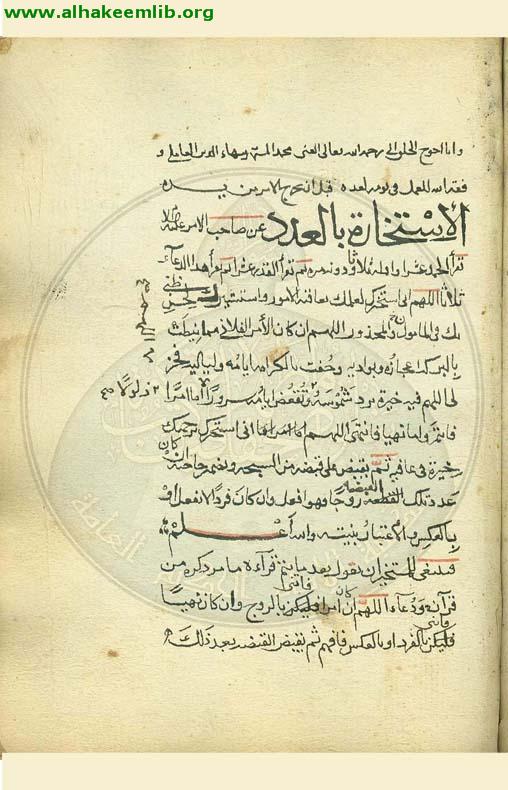 www.alhakeemlib.org
وانا احوج الخلق الى رحمة الله تعالى الغنى محمد المشتهر ببهاء الدين العاملى و
فقه الله للعمل فى يومه لغده قبل ان يخرج الامر من يده
الاستخارة بالعدد عن صاحب الامر عليه السلام
تقرأ الحمد عشرا واقله ثلاثا ودونه مرة ثم تقرأ القدر عشرا ثم تقرأ هذا الدعاء
ثلاثا اللهم انى استخيرك لعلمك بعاقبة الامور واستشيرك لحسن ظنى
بك فى المامول والمحذور اللهم ان كان الأمر الفلانى مما نيطت
بالبركة اعجازه وبواديه وحفت بالكرامة ايامه ولياليه فخر
لى اللهم فيه خيرة ترد شموسه ذلولا وتقعض ايامه سرورا اللهم اما امرا
فائتمر واما نهيا فانتهى اللهم انى استخيرك برحمتك
خيرة فى عافية ثم يقبض على قبضه من السبحة ويضمر حاجته ان كان
عدد تلك القطعة زوجا فهو افعل وان كان فردا لا تفعل او
بالعكس والأعتبار بنيته والله أعلم
فينبغى للمستخير ان يقول بعد ما يتم قرآءة ما مر ذكره من
قرآنه ودعآءه اللهم ان كان امرا فليكن بالزوج وان كان نهيا
فليكن بالفرد او بالعكس فافهم ثم يقبض القبضه وبعد ذلك